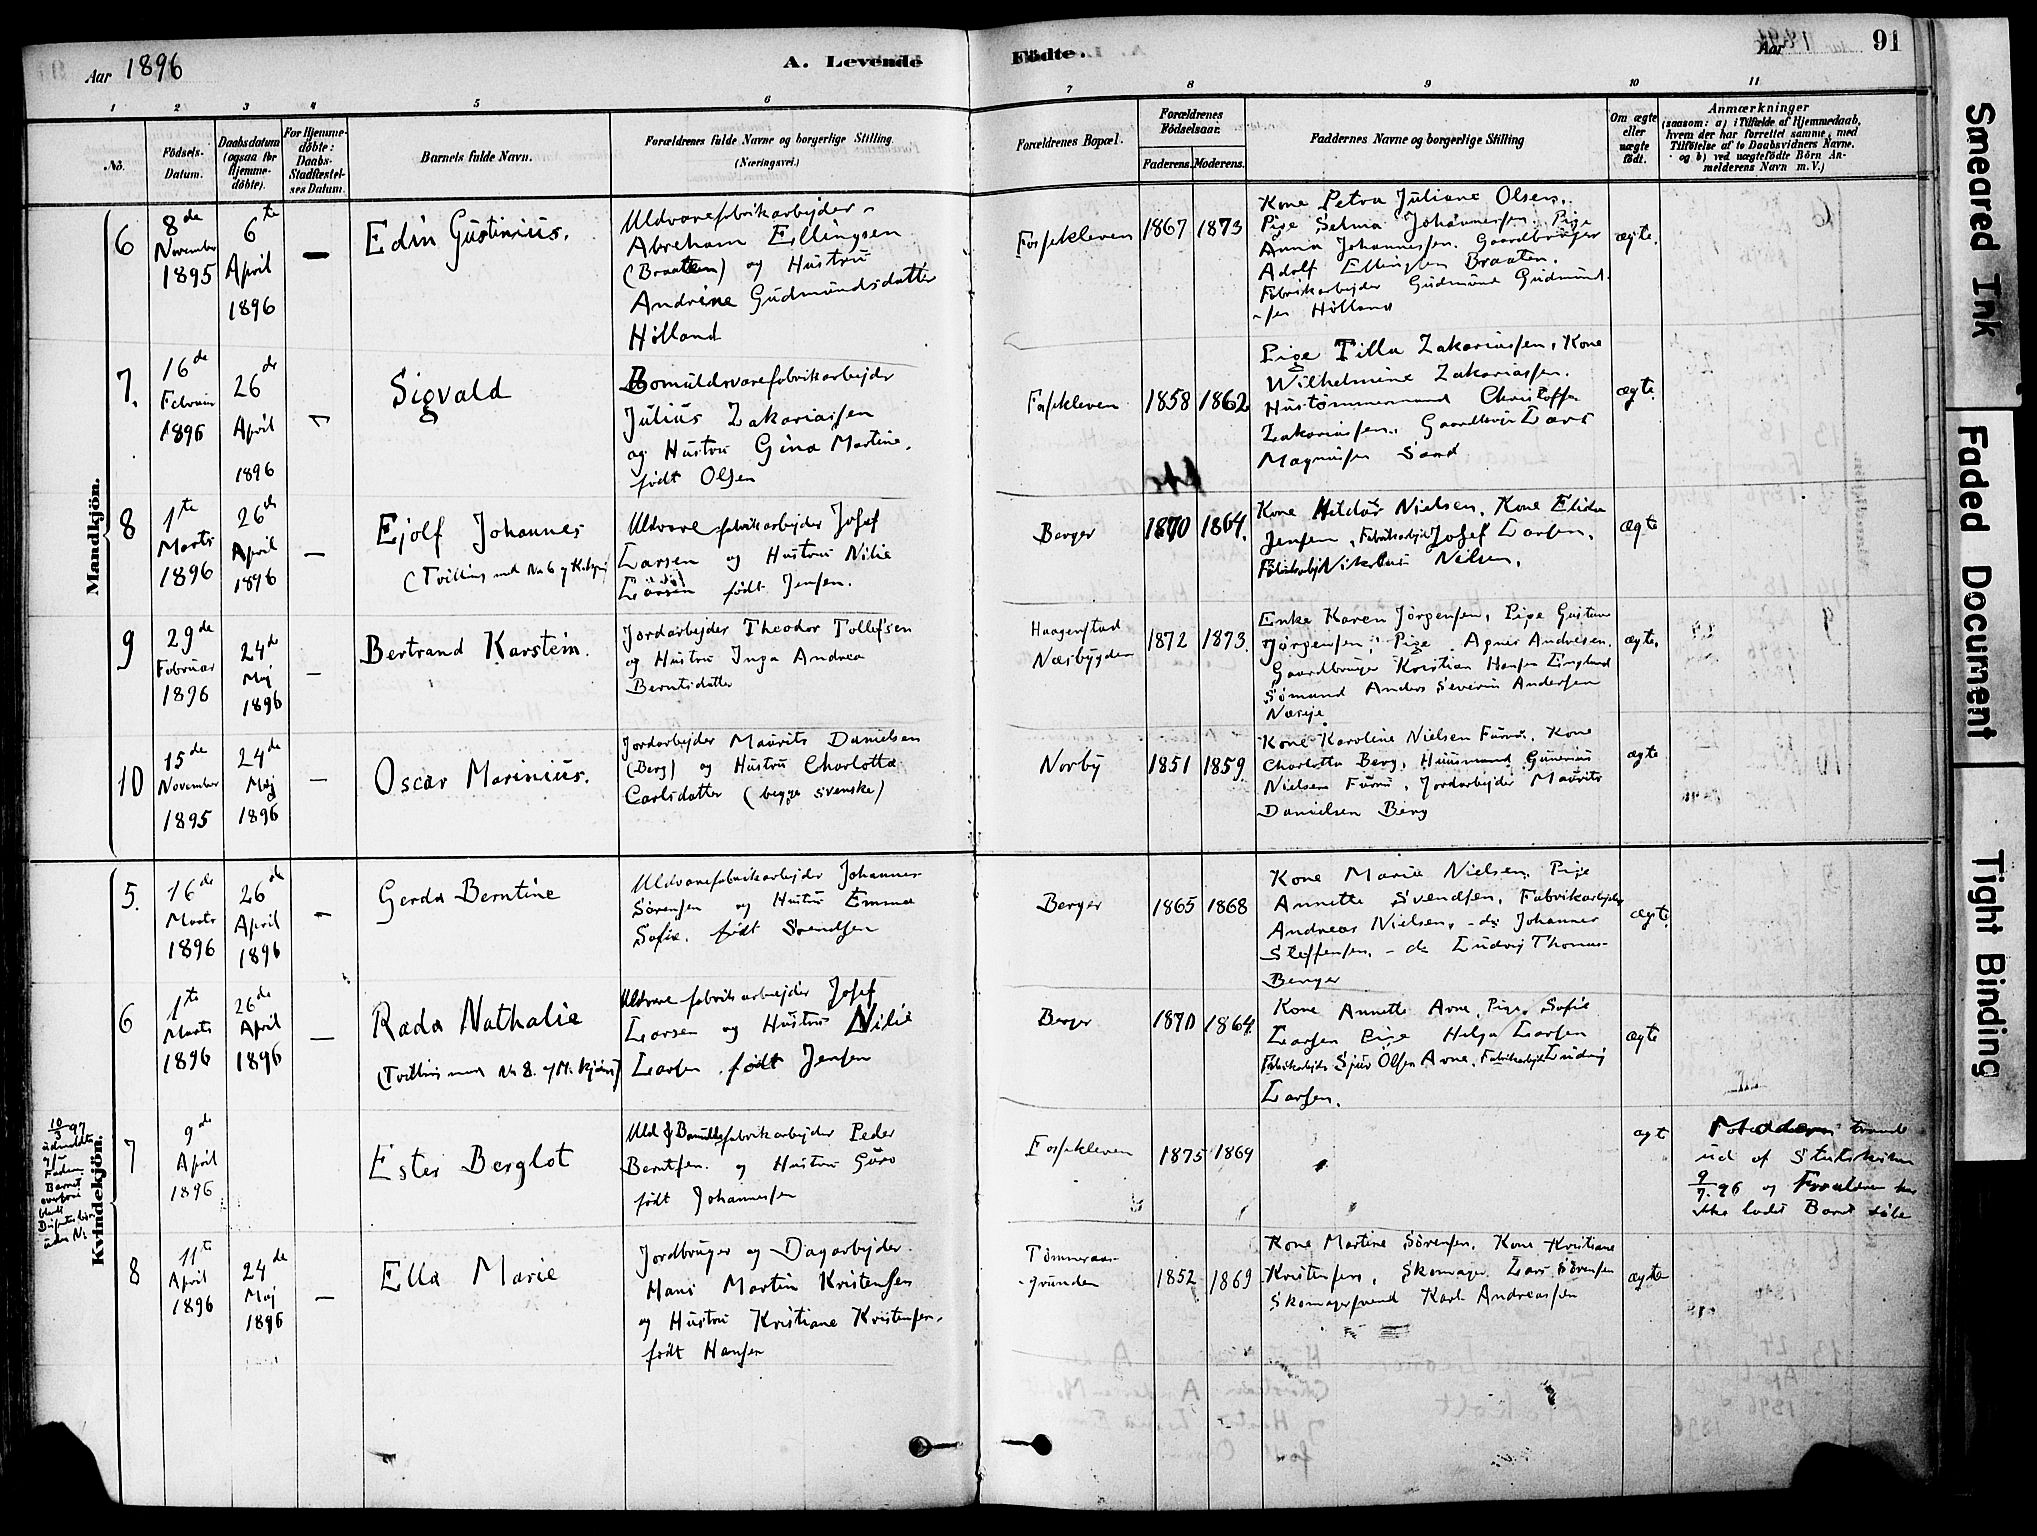 Aar 1896
A. Levende
Fødte.
Aar 1896
91
1 2 3 4 5 6 7 8 9 10 11
No.
Födsels-Datum.
Daabsdatum (ogsaa for Hjemmedöbte).
For Hjemmedöbte: Daabs-Stadfæstelses Datum.
Barnets fulde Navn.
Forældrenes fulde Navne og borgerlige Stilling.
(Næringsvei.)
Forældrenes Bopæl.
Forældrenes Födselsaar.
Faderens. Moderens.
Faddernes Navne og borgerlige Stilling
Om ægte eller uægte födt.
Anmærkninger
(saasom: a) i Tilfælde af Hjemmedaab,
hvem der har forrettet samme, med
Tilföielse af to Daabsvidners Navne.
og b) ved uægtefödte Börn An-
melderens Navn m. V.)
Mandkjön.
6
8de November 1895
6te April 1896
—
Edin Gustinius.
Uldvarefabrikarbejder
Abraham Ellingsen
(Braaten) og Hustru
Andrine Gudmundsdatter
Holland
Fossekleven
1867 1873
Kone Petra Juliane Olsen.
Pige Selma Johannessen. Pige
Anna Johannessen. Gaardbruger
Adolf Ellingsen Braaten.
Fabrikarbejder Gudmund Gudmund-
sen Holland
ægte.
7.
16de Februar 1896
26de April 1896
Sigvald
Bomuldsvarefabrikarbejdr
Julius Zakariassen
og Hustru Gina Martine.
født Olsen
Fossekleven
1858 1862
Pige Tilla Zakariassen, Kone
Wilhelmine Zakariassen.
Hustømmermand Christoffer
Zakariassen. Gaardbruger Lars
Magnussen Sand
ægte.
8
1te Marts 1896
26de April 1896
—
Ejolf Johannes
(Tvilling med No 6 af Kvkjøn)
Uldvarefabrikarbejder Josef
Larsen og Hustru Nilie
Larsen født Jensen.
Berger
1870 1864.
Kone Hildur Nielsen, Kone Elida
Jensen, Fabrikarbejd Josef Larsen.
Fabrikarbejd Nielsen.
ægte
9
29de Februar 1896
24de Maj 1896
—
Bertrand Karstein.
Jordarbejder Theodor Tollefsen
og Hustru Inga Andrea
Berntsdatter
Haagenstad
Næsbygden
1872 1873.
Enke Karen Jørgensen, Pige Gustava
Jørgensen, Pige Agnes Andresen.
Gaardbruger Kristian Hansen Englund
Sømand Anders Severin Andersen
Nærsje
ægte.
10
15de November 1895
24de Maj 1896
—
Oscar Marinius.
Jordarbejder Maurits Danielsen
(Berg) og Hustru Charlotta
Carlsdatter (begge svenske)
Norby
1851 1859
Kone Karoline Nielsen Furu, Kone
Charlotta Berg, Huusmand Gunerius
Nielsen Furu, Jordarbejder Maurits
Danielsen Berg
ægte
Kvindekjön.
5.
16de Marts 1896
26de April 1896
—
Gerda Berntine
Uldvarefabrikarbejder Johannes
Sørensen og Hustru Emma
Sofie. født Svendsen
Berger
1865 1868
Kone Marie Nielsen, Pige
Annette Svendsen, Fabrikarbejder
Andreas Nielsen, - do Johannes
Steffensen, - do Ludvig Thomas-
Berger
ægte.
6
1te Marts 1896
26de April 1896
—
Rada Nathalie
(Tvilling med No 8. af M. kjøn)
Uldvarefabrikarbejder Josef
Larsen og Hustru Nilie
Larsen. født Jensen
Berger
1870 1864.
Kone Annette Arne, Pige Sofie
Larsen Pige Helga Larsen
Fabrikarbejder Sjur Olsen Arne, Fabrikarbejd Ludvig
Larsen.
ægte
10/3 97
udmeldte
Faderen
Barnet
7
9de April 1896
Ester Berglot
Uld & Bomuldsfabrikarbejder Peder
Berntsen. og Hustru Guro
født Johannessen
Fossekleven
1875 1869
ægt
Moderen traadt
ud af Statskirken
9/7.96 og Forældrene har
ikke ladet Barnet døbe
8
11te April 1896
24de Maj 1896
—
Ella Marie
Jordbruger og Dagarbejder.
Hans Martin Kristensen
og Hustru Kristiane Kristensen.
født Hansen
Tømmeraas-
grunden
1852 1869
Kone Martine Sørensen, Kone Kristiane
Kristensen, Skomager Lars Sørensen
Skomagersvend Karl Andreassen
ægte
Smeared Ink
Faded Document
Tight Binding